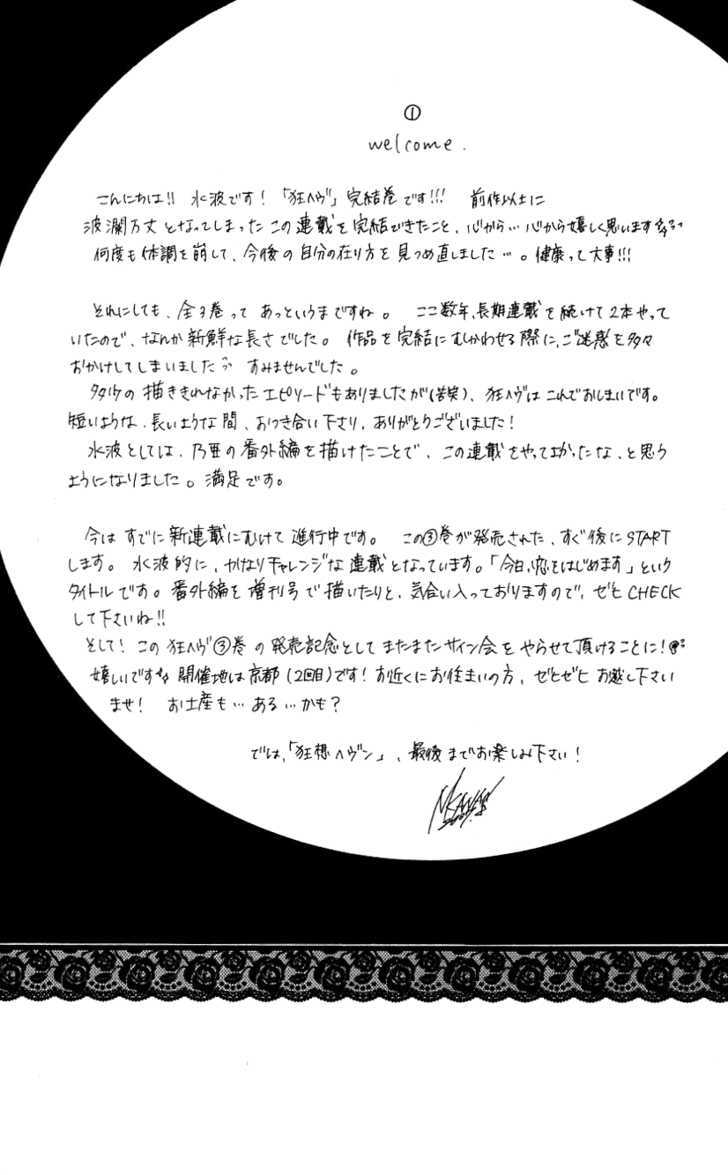 ①
welcome.
こんにちは!! 水波です! 「狂ヘヴ」完結巻です!!! 前作以上に
波瀾万丈となってしまったこの連載を完結できたこと、心から…心から嬉しく思います
何度も体調を崩して、今後の自分の在り方を見つめ直しました…。健康って大事!!!
それにしても、全3巻ってあっというまですね。 ここ数年、長期連載を続けて2本やって
いたので、なんか新鮮な長さでした。 作品を完結にむかわせる際に、ご迷惑を多々
おかけしてしまいました すみませんでした。
多少の描ききれなかったエピソードもありましたが(苦笑)、狂ヘヴはこれでおしまいです。
短いような、長いような間、おつき合い下さり、ありがとうございました!
水波としては、乃亜の番外編を描けたことで、この連載をやってよかったな、と思う
ようになりました。満足です。
今はすでに新連載にむけて進行中です。 この③巻が発売された、すぐ後にSTART
します。 水波的に、かなりチャレンジな連載となっています。「今日、恋をはじめます」という
タイトルです。番外編を増刊号で描いたりと、気合い入っておりますので、ぜひCHECK
して下さいね!!
そして! この狂ヘヴ③巻の発売記念としてまたまたサイン会をやらせて頂けることに!
嬉しいです 開催地は京都(2回目)です! お近くにお住まいの方、ぜひぜひお越し下さい
ませ! お土産も…ある…かも?
では、「狂想ヘヴン」、最後までお楽しみ下さい!